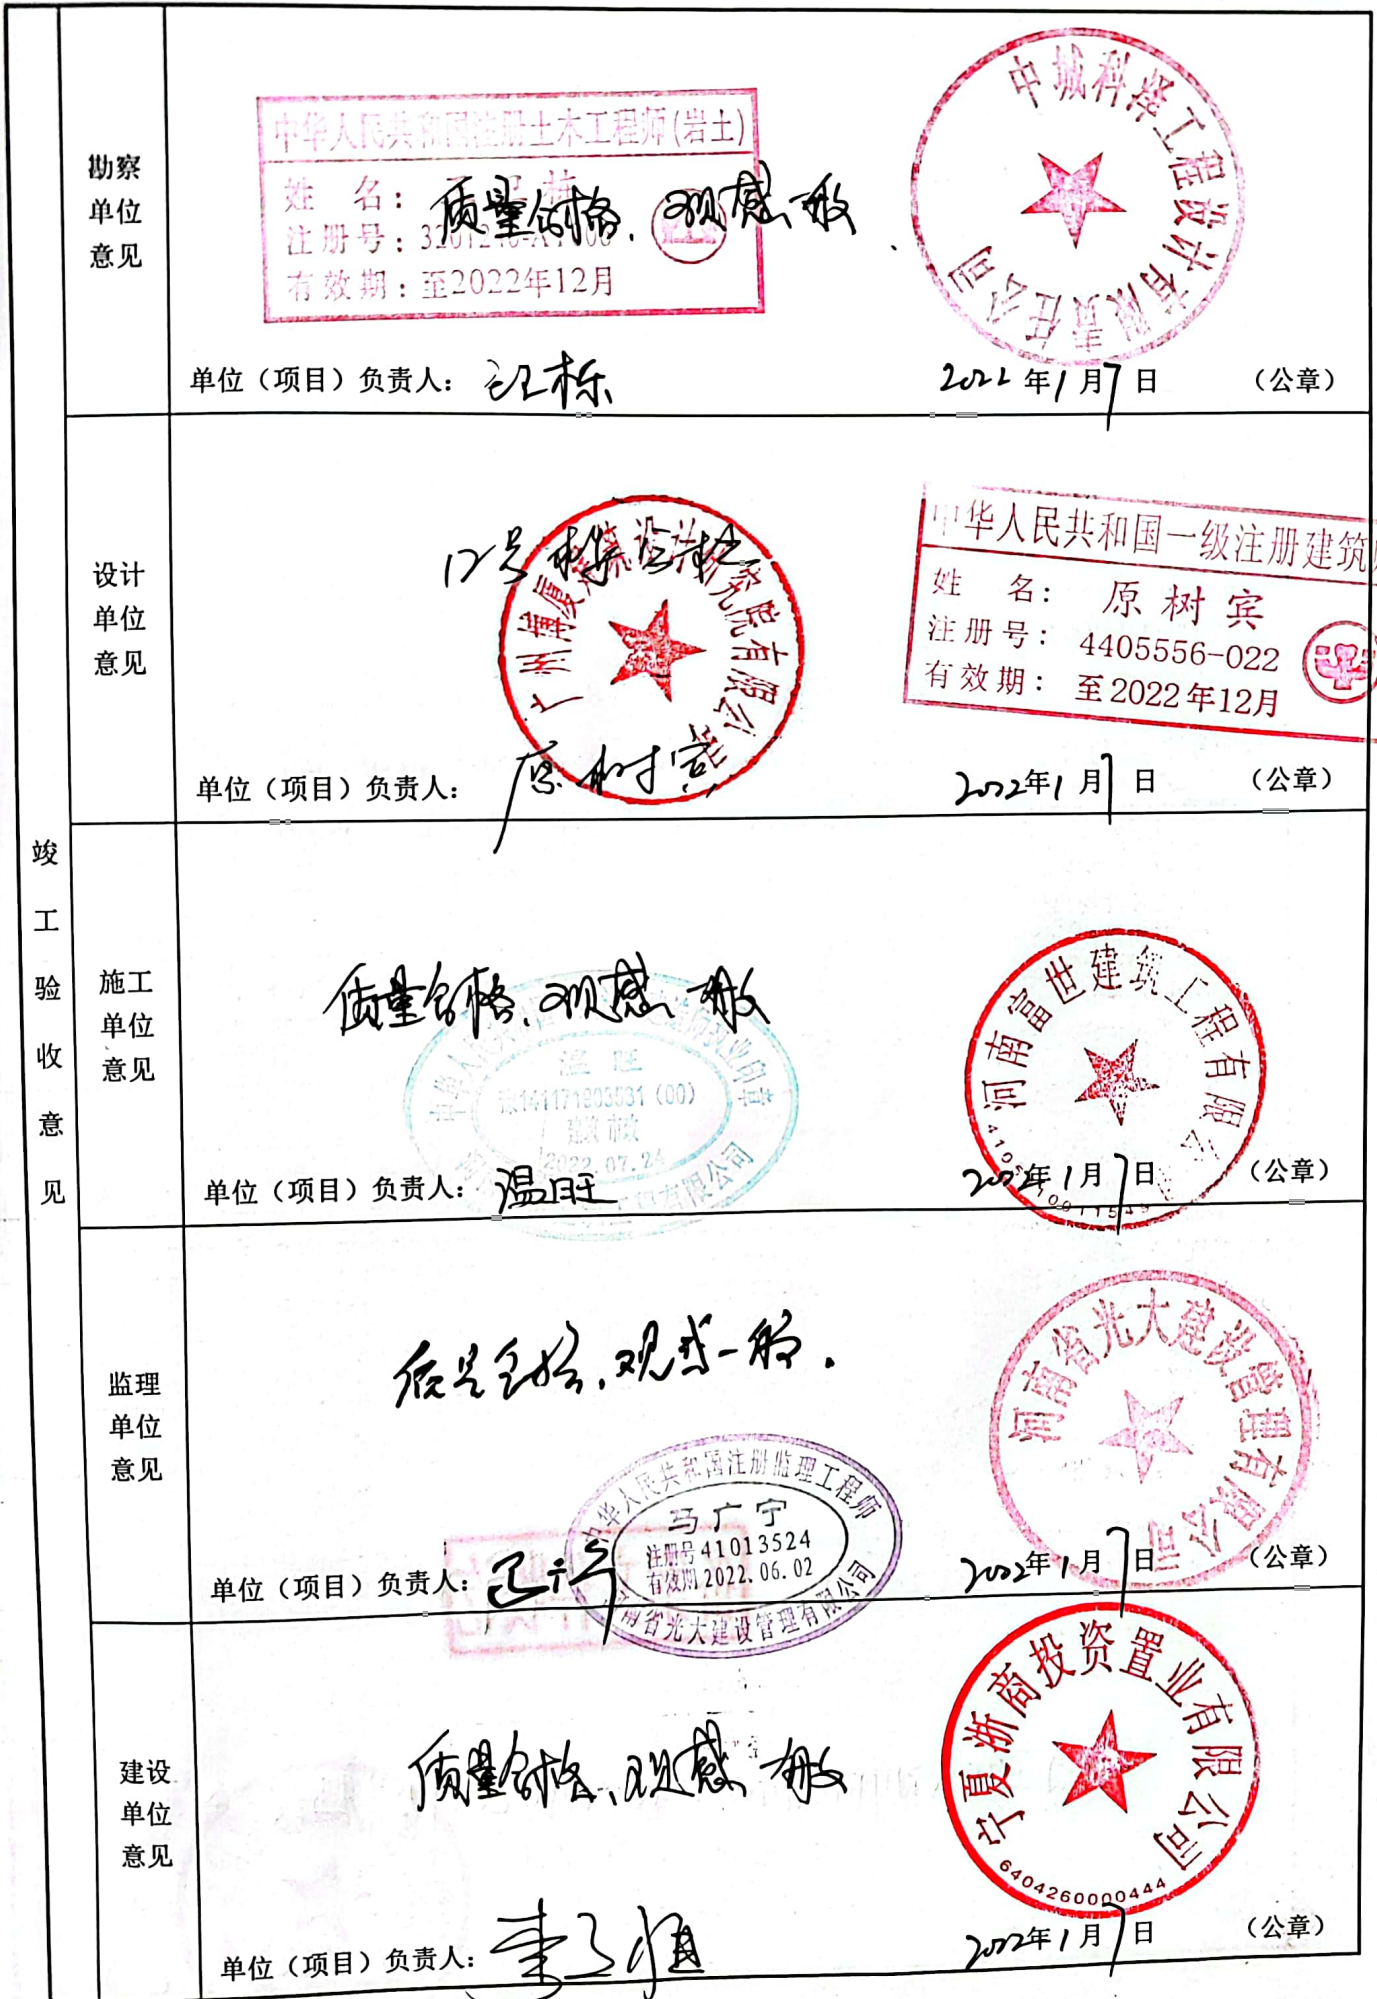 竣工验收意见
勘察单位意见
中华人民共和国注册土木工程师(岩土)
姓 名：
注册号：
有效期：至2022年12月
质量合格、观感一般
中城科泽工程设计有限责任公司
单位（项目）负责人：汪栎
2022年1月7日 （公章）
设计单位意见
广州南厦建筑设计研究院有限公司
中华人民共和国一级注册建筑师
姓 名：原树宾
注册号：4405556-022
有效期：至2022年12月
单位（项目）负责人：原树宾
2022年1月7日 （公章）
施工单位意见
质量合格、观感一般
温旺
豫141171903531（00）
建筑 市政
2022.07.24
河南富世建筑工程有限公
单位（项目）负责人：温旺
2022年1月7日 （公章）
监理单位意见
质量合格、观感一般.
河南省光大建设管理有限公司
中华人民共和国注册监理工程师
马广宁
注册号41013524
有效期2022.06.02
河南省光大建设管理有限公司
单位（项目）负责人：
2022年1月7日 （公章）
建设单位意见
质量合格、观感一般
宁夏浙商投资置业有限公司
6404260000444
单位（项目）负责人：
2022年1月7日 （公章）